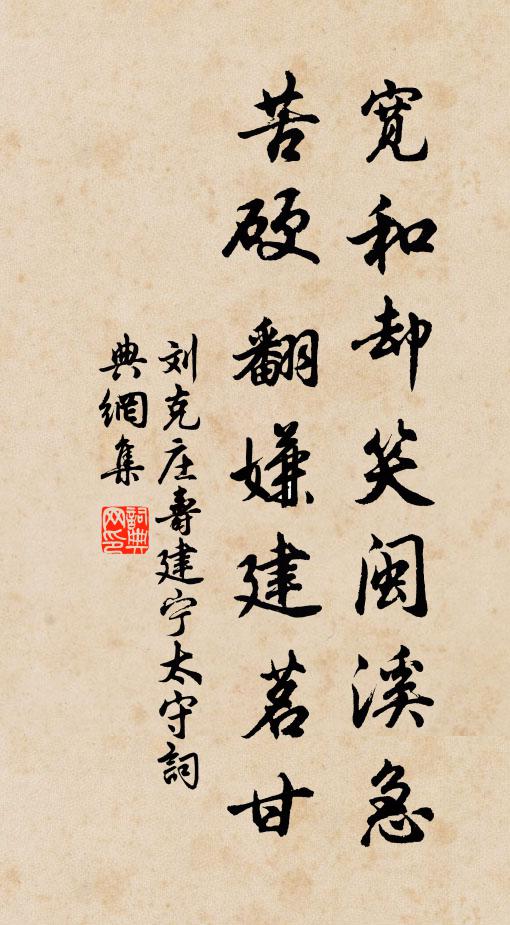 宽和却笑闽溪急
苦硬翻嫌建茗甘
刘克庄寿建宁太守词
典網集
詞典網印